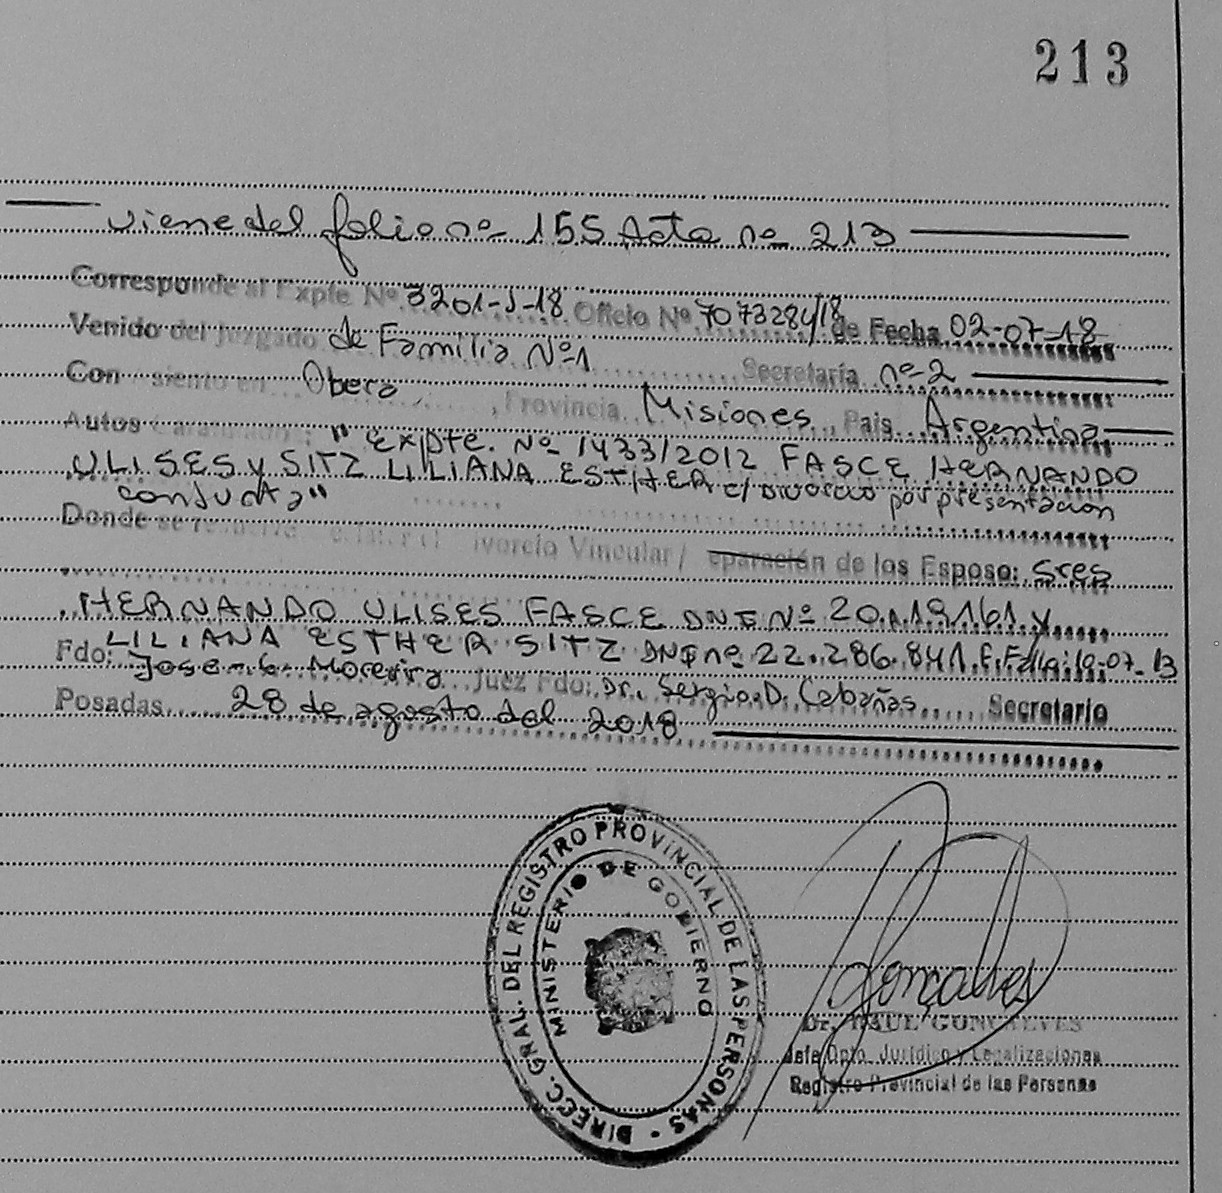 213
viene del folio nº 155 Acta nº 213
Corresponde al Expte Nº 3201-J-18 Oficio Nº 7073284/18 de Fecha 02-07-18
Venido del juzgado de Familia Nº 1 Secretaría nº 2
Con siento en Oberá, Provincia Misiones País Argentina
Autos Caratulado: "Expte. Nº 1433/2012 FASCE HERNANDO
ULISES y SITZ LILIANA ESTHER c/ Divorcio por presentación
conjunta"
Donde se resuelve el Divorcio Vincular / eparación de los Esposo: Sres
HERNANDO ULISES FASCE DNI Nº 20.119.161 y
LILIANA ESTHER SITZ DNI nº 22.286.841. F. Fallo: 10-07-13
Fdo: Jose G. Moreira Juez Fdo: Dr. Sergio D. Cabañas Secretario
Posadas 28 de agosto del 2018
DIRECC. GRAL. DEL REGISTRO PROVINCIAL DE LAS PERSONAS -
MINISTERIO DE GOBIERNO
Gonçalves
Dr. RAUL GONÇALVES
Jefe Dpto. Jurídico y Legalizaciones
Registro Provincial de las Personas